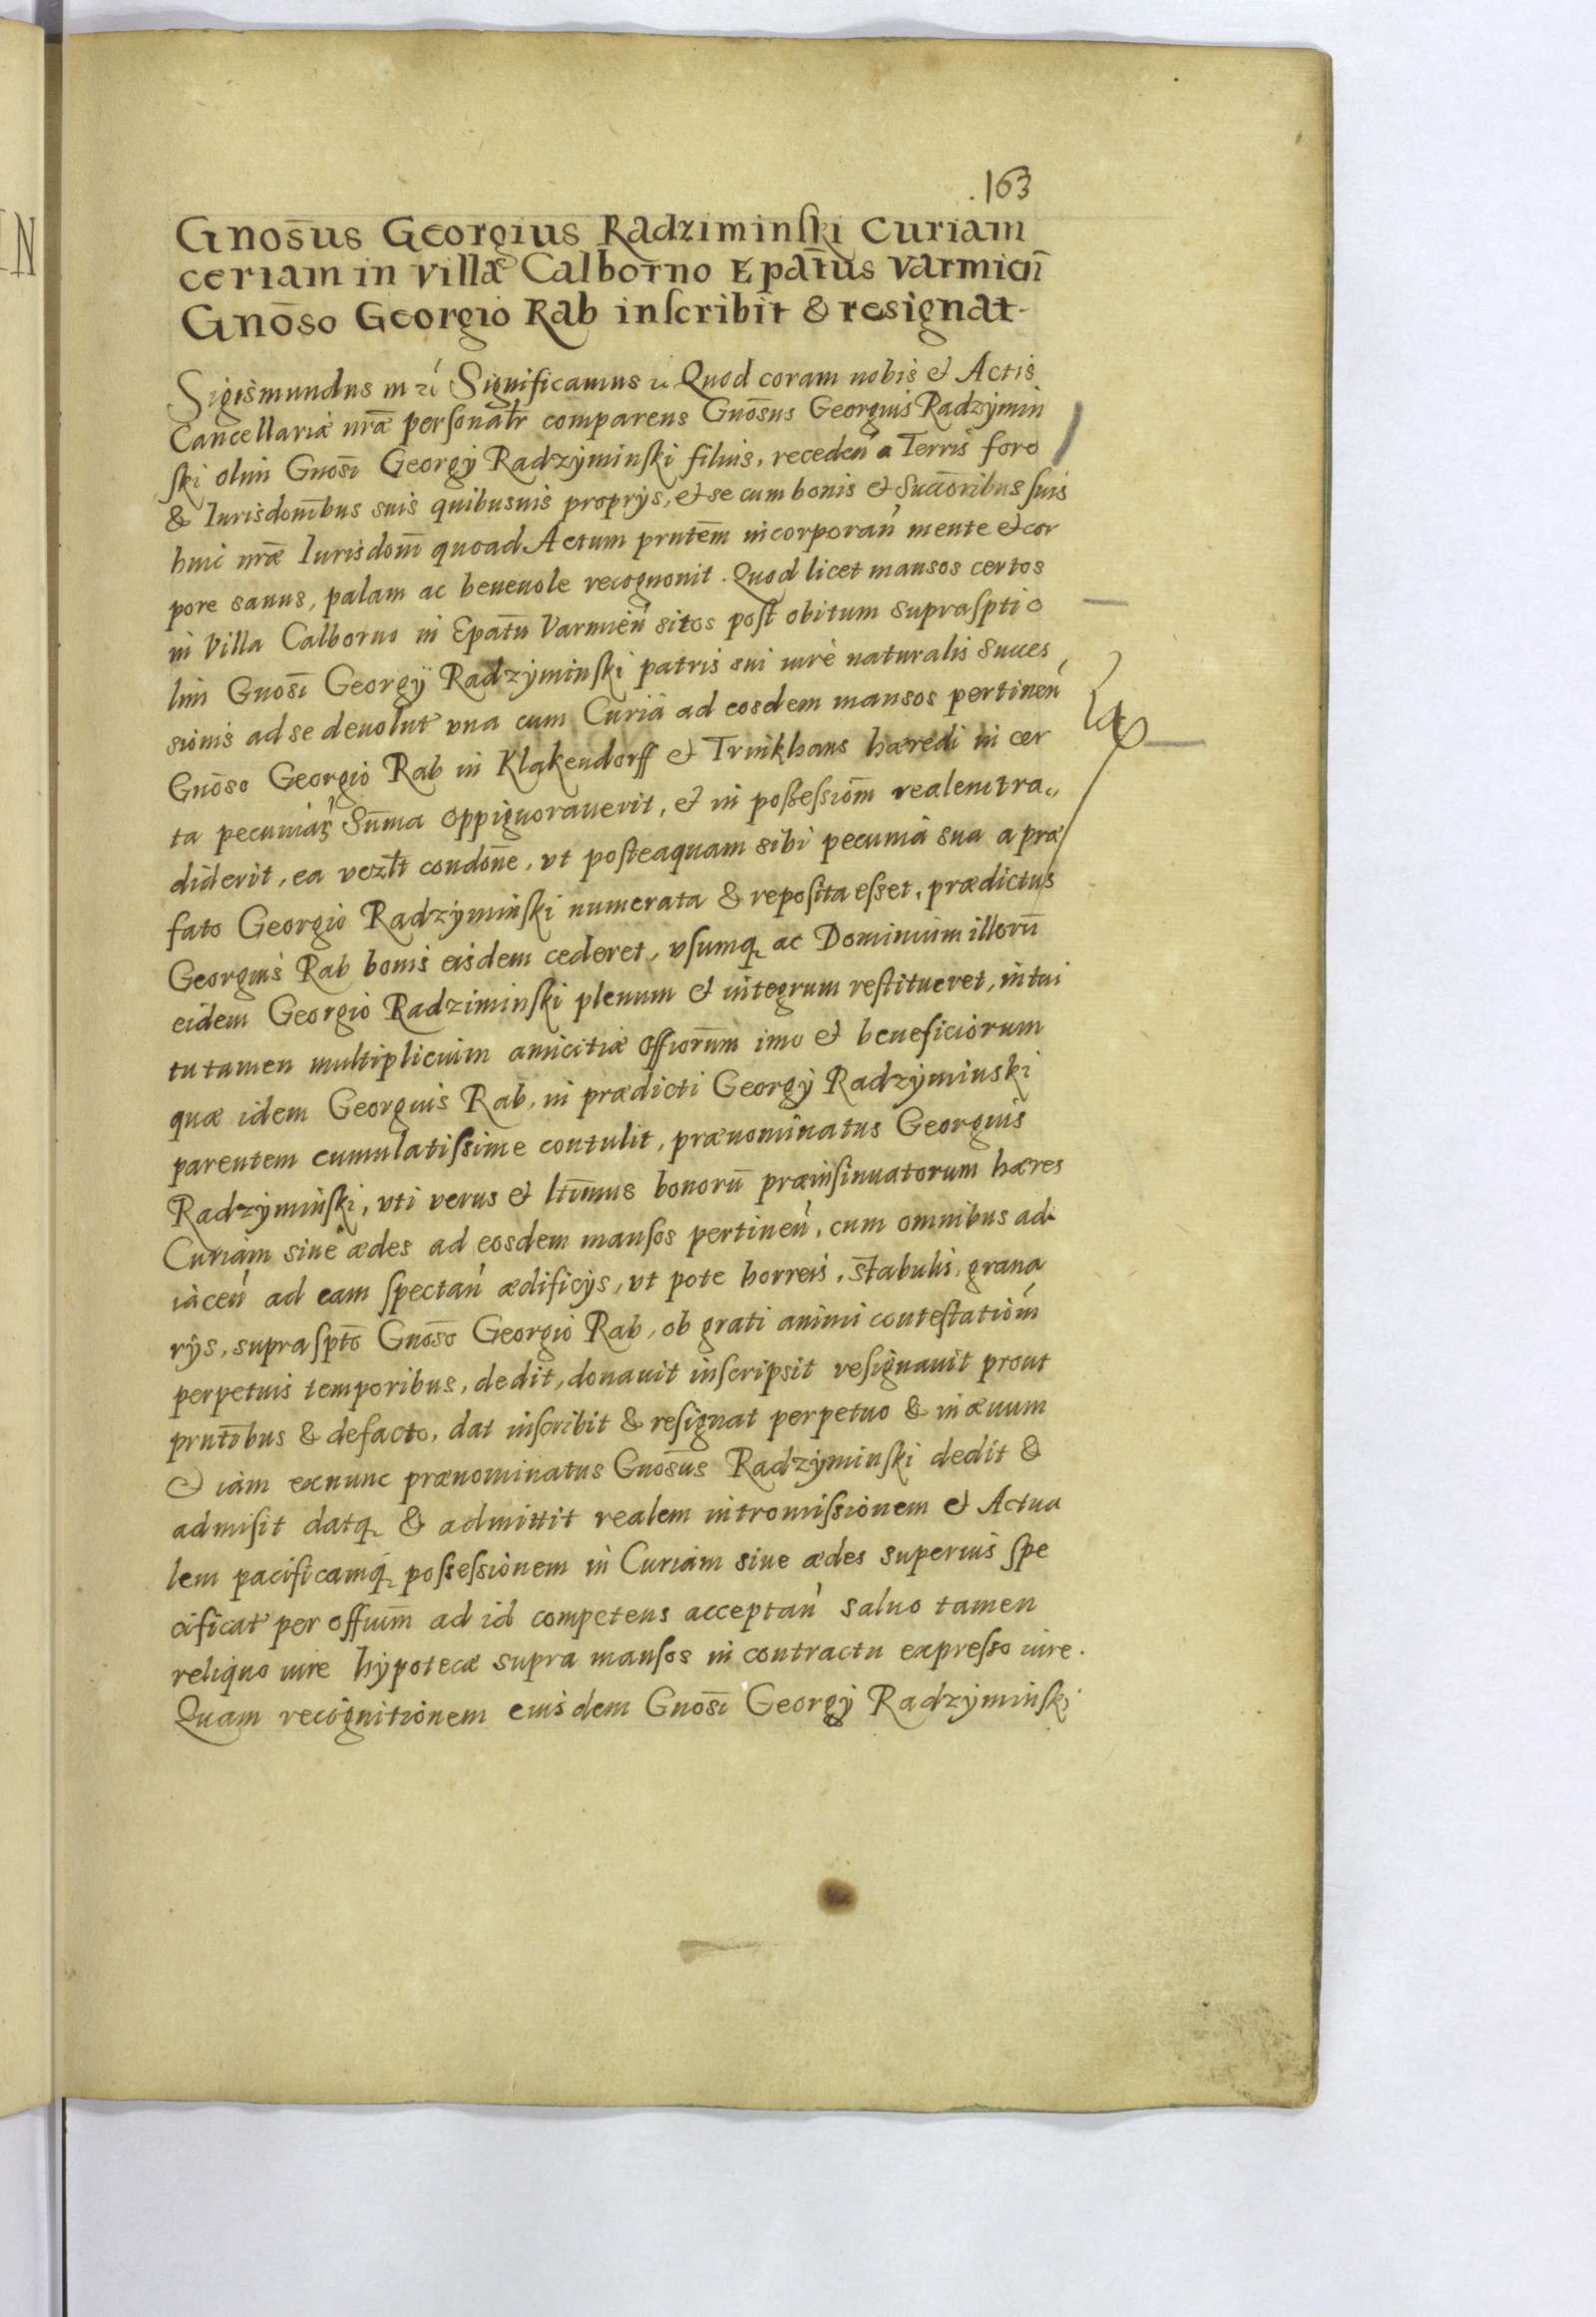 163
Gnos̄us Georgius Radziminski Curiam
ceriam in villæ Calborno Epat̄us Varmicn̄
Gnōso Georgio Rab inscribit & resignat
Sigismundus III Significamus Quod coram nobis et Actis
Cancellariæ nr̄æ personalr̄ comparens Gnōsus Georgius Radzymin
ski olim Gnosī Georgÿ Radzyminski filius, receden̄ a Terris foro
& Iurisdon̄ibus suis quibusuis proprÿs, et se cum bonis et Succōribus suis
huic nr̄æ Iurisdonī quoad Actum prntēm incorporan̄ mente et cor
pore sanus, palam ac beneuole recognouit. Quod licet mansos certos
in Villa Calborno in Epat̄u Varmien̄ sitos post obitum suprasptio
lim Gnosī Georgÿ Radzyminski patris sui iure naturalis Succes
sionis ad se deuolut una cum Curia ad eosdem mansos pertinen̄
Gnōso Georgio Rab in Klakendorff et Trinkhaus hæredi in cer
ta pecuniar Sūma oppignorauerit, et in possessiōm realem tra„
diderit, ea condōne, vt posteaquam sibi pecunia sua a præ
fato Georgio Radzyminski numerata & reposita esset, prædictus
Georgius Rab bonis eisdem cederet, vsumq ac Dominium illorū
eidem Georgio Radziminski plenum et integrum restitueret, intui
tu tamen multiplicium amicitiæ offiorūm imo et beneficiorum
quæ idem Georgius Rab, in prædicti Georgÿ Radzyminski
parentem cumulatissime contulit, prænominatus Georgius
Radzyminski, vti verus et ltīmus bonorū præinsinuatorum hæres
Curiam siue ædes ad eosdem mansos pertinen̄, cum omnibus ad
iacen̄ ad eam spectan̄ ædificÿs, vt pote horreis, stabulis, grana
rÿs, supraspto Gnōso Georgio Rab, ob grati animi contestatiōm
perpetuis temporibus, dedit, donauit inscripsit resignauit prout
prntībus & defacto, dat inscribit & resignat perpetuo & in æuum
Et iam exnunc prænominatus Gnōsus Radzyminski dedit &
admisit datq & admittit realem intromissionem et Actua
lem pacificamq possessionem in Curiam siue ædes superius spe
cificat per offium̄ ad id competens acceptan̄ saluo tamen
reliquo iure hypotecæ supra mansos in contractu expresso iure.
Quam recognitionem eiusdem Gnosī Georgÿ Radzyminski